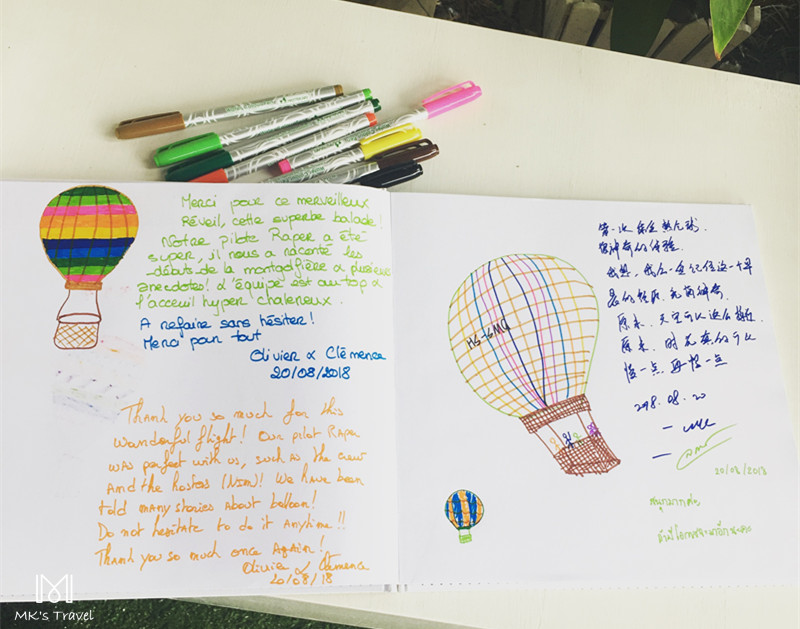 Merci pour ce merveilleux
Réveil, cette superbe balade!
Notre pilote Raper a été
super, il nous a raconté les
débuts de la montgolfière & plusieurs
anecdotes! L'équipe est au top &
l'acceuil hyper chaleureux.
A refaire sans hésiter!
Merci pour tout
Olivier & Clémence
20/08/2018
Thank you so much for this
wonderful flight! Our pilot Raper
was perfect with us, such as the crew
And the hostess (Nim)! We have been
told many stories about balloon!
Do not hesitate to do it Anytime!!
Thank you so much once Again!
Olivier & Clémence
20/08/18
第一次乘坐热气球,
我想,我会一定记住这一
原来,天空可以这么
原来,时光真的可以
慢一点,再慢一点
2018.08.20
— MK
20/08/2018
สนุกมากค่ะ
MK's Travel